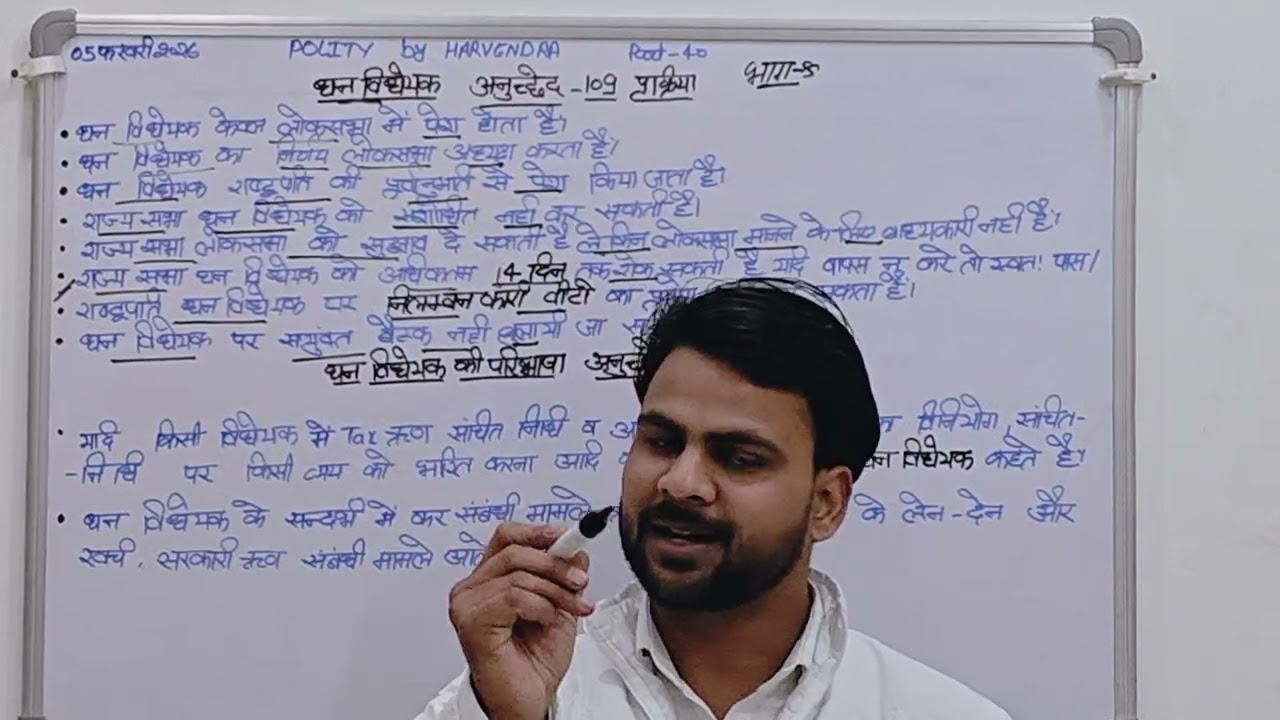 05 फरवरी 2026 POLITY by HARVENDRA Poot-40
धन विधेयक अनुच्छेद-109 प्रक्रिया भाग-8
• धन विधेयक केवल लोकसभा में पेश होता है।
• धन विधेयक का निर्णय लोकसभा अध्यक्ष करता है।
• धन विधेयक राष्ट्रपति की पूर्वानुमति से पेश किया जाता है।
• राज्य सभा धन विधेयक को संशोधित नही कर सकती है।
• राज्य सभा लोकसभा को सुझाव दे सकता है लेकिन लोकसभा मानने के लिए वाध्यकारी नही है।
• राज्य सभा धन विधेयक को अधिकतम 14 दिन तक रोक सकती है यदि वापस न करे तो स्वतः पास।
• राष्ट्रपति धन विधेयक पर निलम्बनकारी वीटो का सकता है।
• धन विधेयक पर सयुंक्त बैठक नही बुलायी जा
धन विधेयक की परिभाषा
• यदि किसी विधेयक में Tax ऋण संचित निधि व विनियोग, संचित-
-निधि पर किसी व्यय को भारित करना आदि धन विधेयक कहते है।
• धन विधेयक के सन्दर्भ में कर संबंधी मामले के लेन-देन और
खर्च, सरकारी ऋण संबंधी मामले